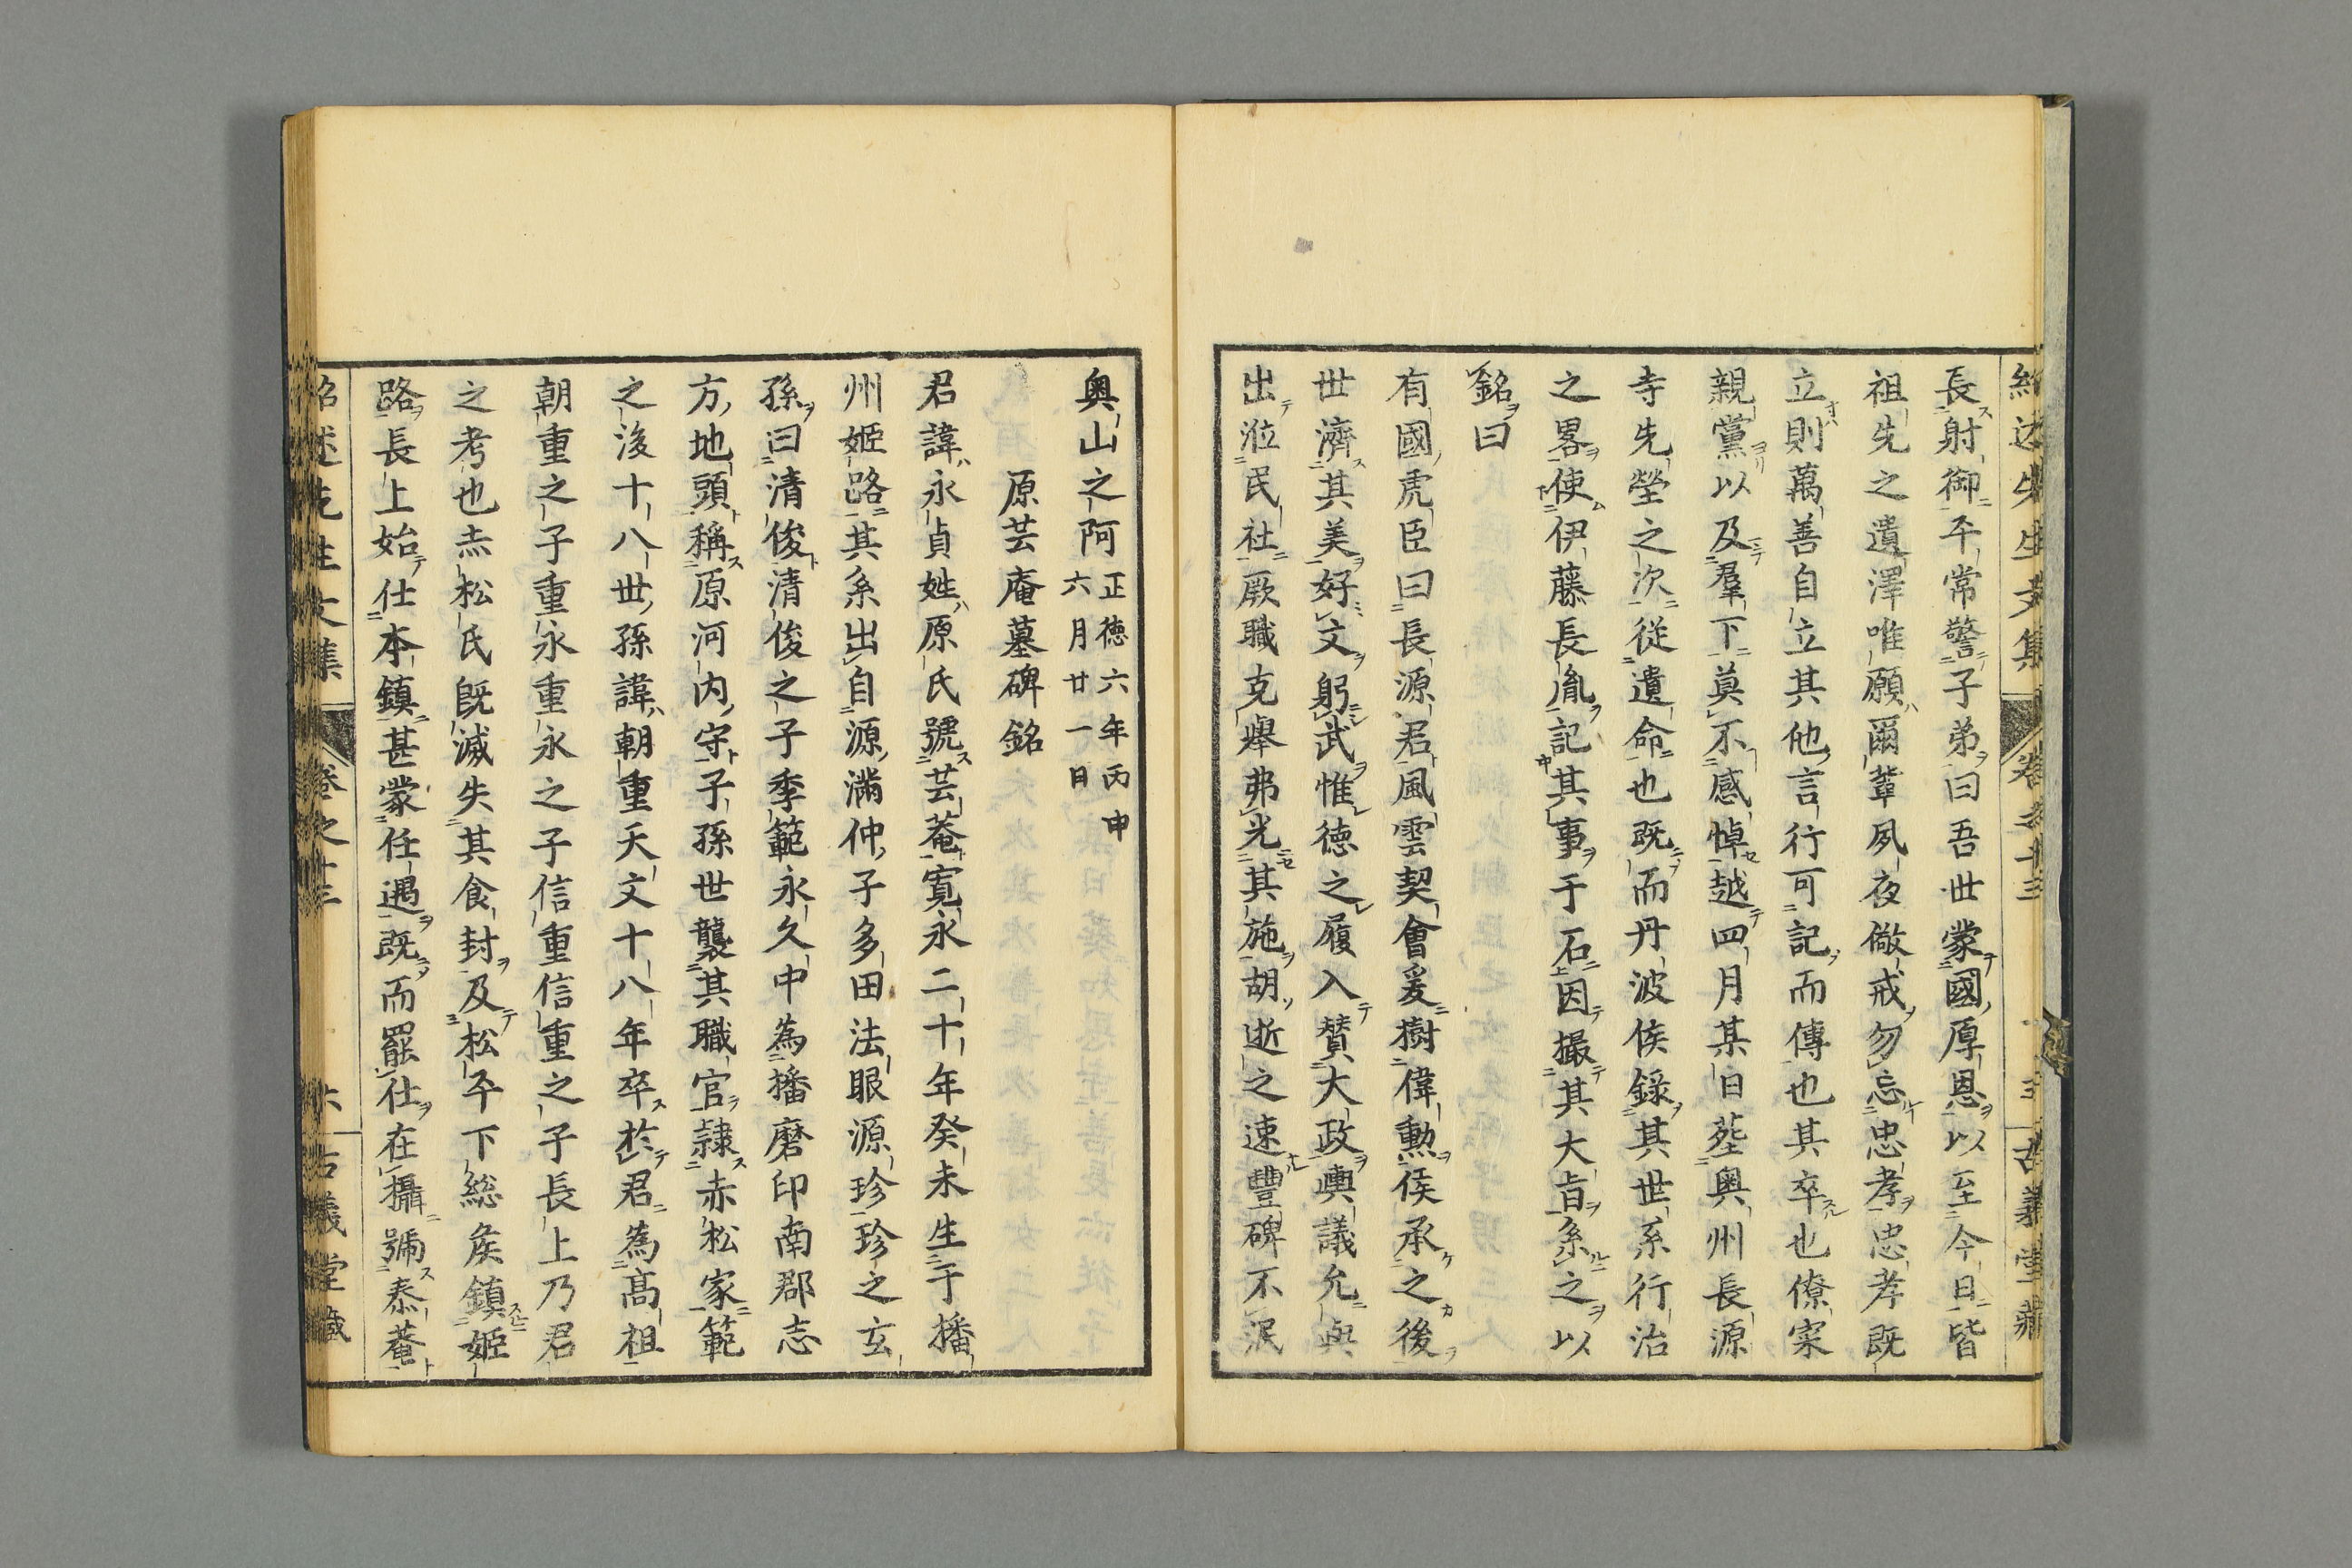 長射御平常警子弟曰吾世蒙國厚恩以至今日皆
祖先之遺澤唯願爾輩夙夜儆戒勿忘忠孝忠孝既
立則萬善自立其他言行可記而傳也其卒也僚寀
親黨以及羣下莫不感悼越四月某日塟奧州長源
寺先塋之次從遺命也既而丹波侯錄其世系行治
之畧使伊藤長胤記其事于石因撮其大旨系之以
銘曰
有國虎臣曰長源君風雲契會爰樹偉勲侯承之後
世濟其美好文躬武惟德之履入賛大政輿議允與
出涖民社厥職克舉弗光其施胡逝之速豐碑不泯
奥山之阿
正德六年丙申
六月廿一日
原芸庵墓碑銘
君諱永貞姓原氏號芸菴寬永二十年癸未生于播
州姬路其系出自源滿仲子多田法眼源珍珍之玄
孫曰清俊清俊之子季範永久中為播磨印南郡志
方地頭稱原河内守子孫世襲其職官隷赤松家範
之後十八世孫諱朝重天文十八年卒於君為高祖
朝重之子重永重永之子信重信重之子長上乃君
之考也赤松氏既滅失其食封及松平下総侯鎮姬
路長上始仕本鎮甚蒙任遇既而罷仕在攝號泰菴
紹述先生文集 卷之十三 六 古義堂藏